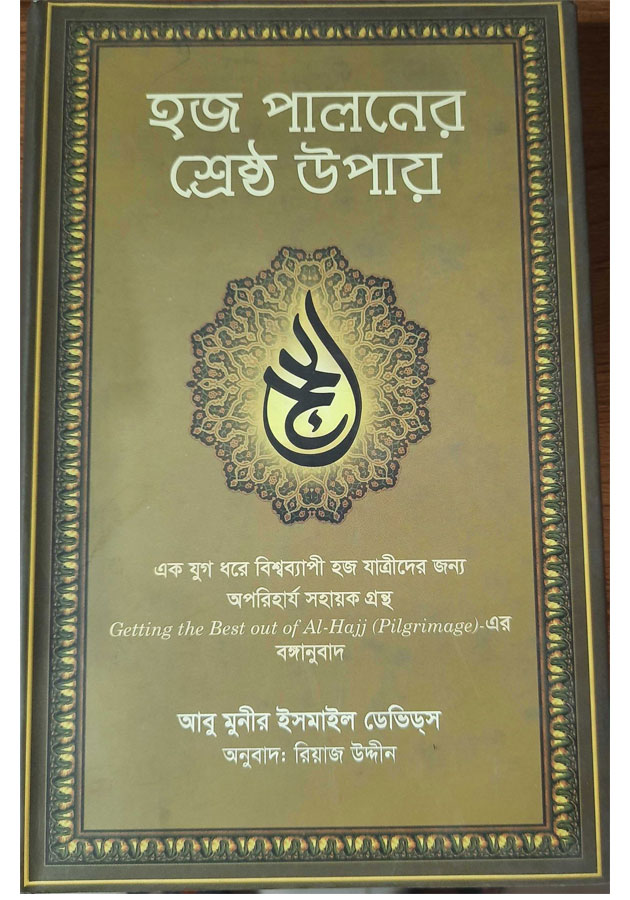 হজ পালনের
শ্রেষ্ঠ উপায়
এক যুগ ধরে বিশ্বব্যাপী হজ যাত্রীদের জন্য
অপরিহার্য সহায়ক গ্রন্থ
Getting the Best out of Al-Hajj (Pilgrimage)-এর
বঙ্গানুবাদ
আবু মুনীর ইসমাইল ডেভিড্‌স
অনুবাদ: রিয়াজ উদ্দীন